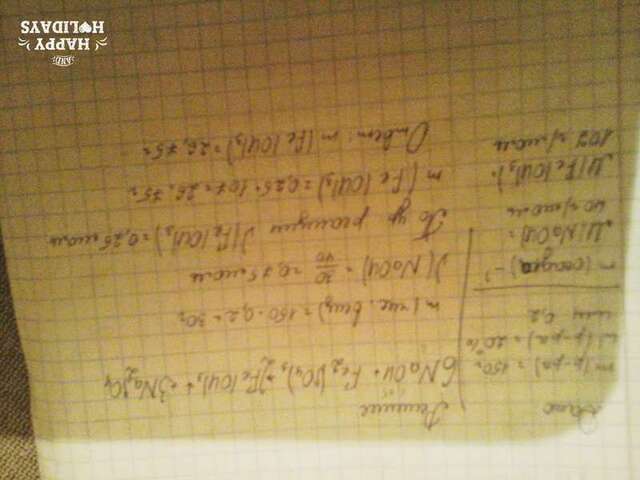 Дано
m(р-ра) = 150г
w(р-ра) = 20%
или 0,2
m(осадка) - ?
M(NaOH) =
40 г/моль
M(Fe(OH)₃) =
107 г/моль
Решение
6NaOH + Fe₂(SO₄)₃ → 2Fe(OH)₃ + 3Na₂SO₄
m(чис. вещ) = 150 · 0,2 = 30г
ν(NaOH) = 30/40 = 0,75 моль
По ур. реакции ν(Fe(OH)₃) = 0,25 моль
m(Fe(OH)₃) = 0,25 · 107 = 26,75г
Ответ: m(Fe(OH)₃) = 26,75г
AND
HAPPY
HOLIDAYS